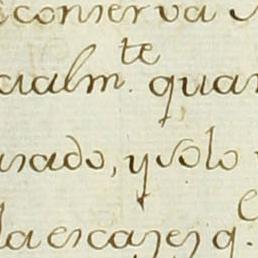 conserva
cialm.te quan
usado, y solo
la escazes q.